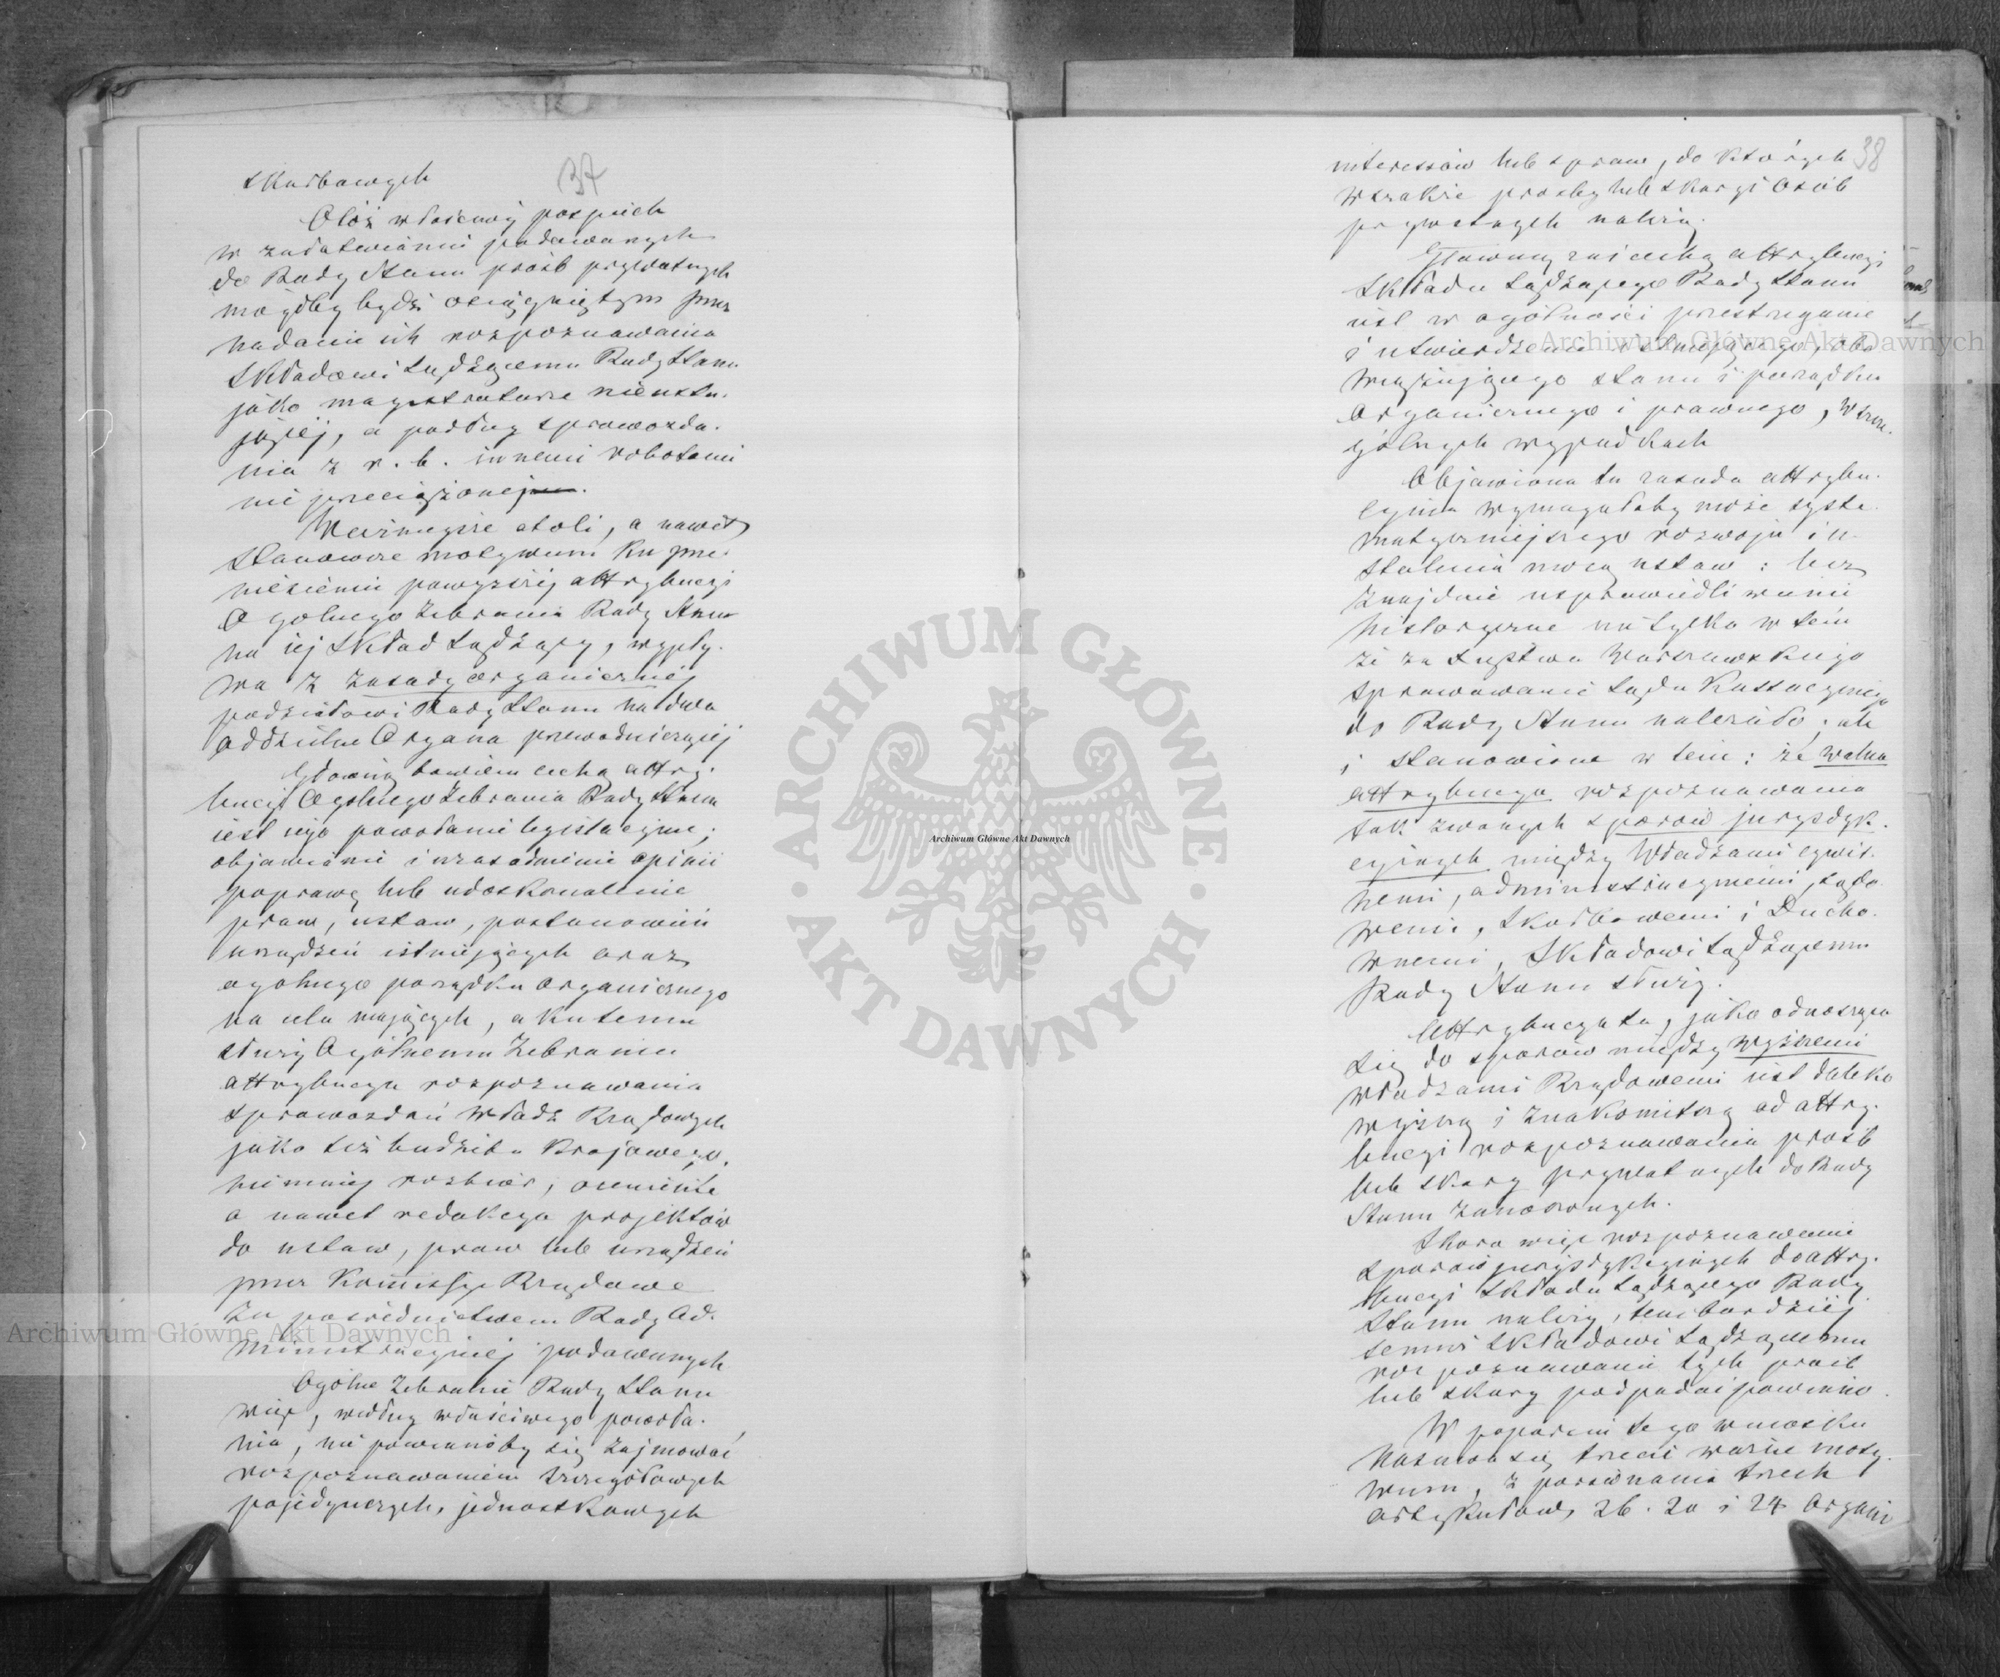 37
skarbowych
Otóż właściwy pośpiech
w załatwianiu podawanych
do Rady Stanu próśb prywatnych
mógłby bydź osiągniętym przez
nadanie ich rozpoznawania
Składowi Sądzącemu Rady Stanu
jako magistraturze nieusta-
jącej, a podług sprawozda-
nia z r. b. innemi robotami
nie przeciążonej.
Ważniejsze atoli, a nawet
stanowcze motywum ku prze-
niesieniu powyższej attrybucyi
Ogólnego Zebrania Rady Stanu
na jej Skład Sądzący, wypły-
wa z zasady organicznej
podziałowi Rady Stanu na dwa
oddzielne Organa przewodniczącej
Główną bowiem cechą attry-
bucyi Ogólnego Zebrania Rady Stanu
jest jego powołanie legislacyjne;
objawianie i uzasadnienie opinii
poprawę lub udoskonalenie
praw, ustaw, postanowień
urządzeń istniejących oraz
ogólnego porządku Organicznego
na celu mających, a ku temu
służy Ogólnemu Zebraniu
attrybucya rozpoznawania
sprawozdań Władz Rządowych
jako też budżetu Krajowego,
niemniej rozbiór, ocenienie
a nawet redakcya projektów
do ustaw, praw lub urządzeń
przez Kommissye Rządowe
za pośrednictwem Rady Ad-
ministracyjnej podawanych
Ogólne Zebranie Rady Stanu
więc, według właściwego powoła-
nia, nie powinnoby się zajmować
rozpoznawaniem szczegółowych
pojedynczych, jednostkowych
38
interessów lub spraw, do których
wszakże prośby lub skargi Osób
prywatnych należą.
Główną zaś cechą attrybucyi
Składu Sądzącego Rady Stanu
jest w ogólności przestrzeganie
i utwierdzenie istniejącego, obo-
wiązującego stanu i porządku
Organicznego i prawnego, w szcze-
gólnych wypadkach
Objawiona tu zasada attrybu-
cyjna wymagałaby może syste-
matyczniejszego rozwoju i u-
stalenia mocą ustaw: lecz
znajduje usprawiedliwienie
historyczne nie tylko w tem
że za Xięstwa Warszawskiego
sprawowanie Sądu Kassacyjnego
do Rady Stanu należało; ale
i stanowione w tem: że ważna
attrybucya rozpoznawania
tak zwanych sporów jurysdyk-
cyjnych między Władzami cywil-
nemi, administracyjnemi, sądo-
wemi, Skarbowemi i Ducho-
wnemi, Składowi Sądzącemu
Rady Stanu służy.
Attrybucya ta, jako odnosząca
się do sporów między wyższemi
władzami Rządowemi jest daleko
wyższą i znakomitszą od attry-
bucyi rozpoznawania prośb
lub skarg prywatnych do Rady
Stanu zanoszonych.
Skoro więc rozpoznawanie
sporów jurysdykcyjnych do attry-
bucyi Składu Sądzącego Rady
Stanu należy, tem bardziej
temuż Składowi Sądzącemu
rozpoznawanie tych próśb
lub skarg podpadać powinno.
W poparciu tego wniosku
nasuwa się trzecie ważne moty-
wum, z porównania trzech
artykułów 26. 20 i 24 Organi
Archiwum Główne Akt Dawnych
Archiwum Główne Akt Dawnych
Archiwum Główne Akt Dawnych
ARCHIWUM GŁÓWNE AKT DAWNYCH